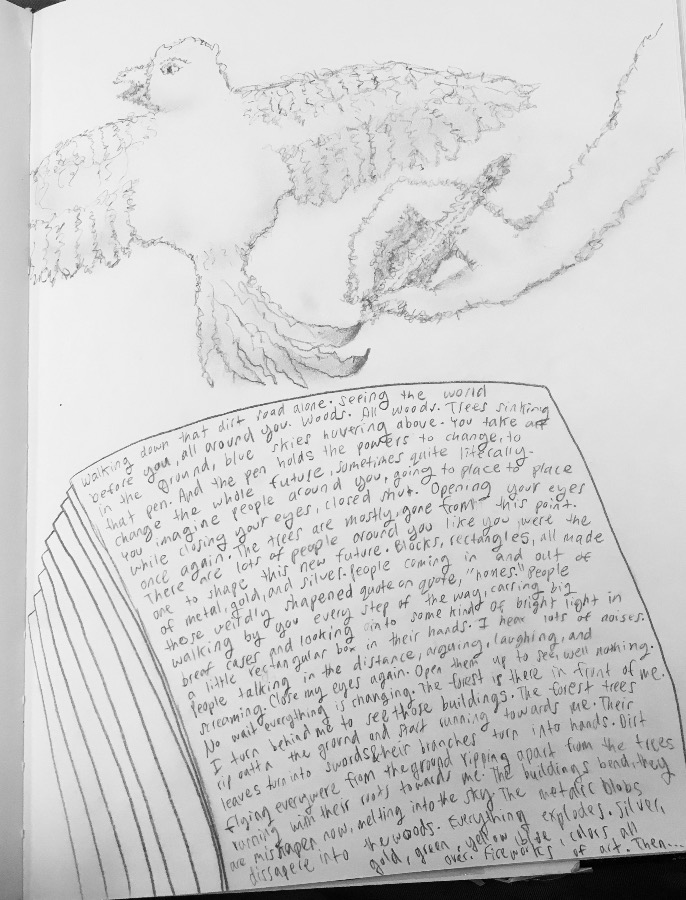 Walking down that dirt road alone. Seeing the world
before you, all around you. Woods. All woods. Trees sinking
in the ground, blue skies hovering above. You take
that pen. And the pen holds the powers to change, to
change the whole future, sometimes quite literally.
You imagine people around you, going to place to place
while closing your eyes, closed shut. Opening your eyes
once again. The trees are mostly gone from this point.
There are lots of people around you like you were the
one to shape this new future. Blocks, rectangles, all made
of metal, gold, and silver. People coming in and out of
those weirdly shaped quote on quote, "homes." People
walking by you every step of the way, carring big
breaf cases and looking into some kind of bright light in
a little rectangular box in their hands. I hear lots of noises.
People talking in the distance, arguing, laughing, and
screaming. Close my eyes again. Open them up to see, well nothing.
No wait everything is changing. The forest is there in front of me.
I turn behind me to see those buildings. The forest trees
rip outta the ground and start running towards me. Their
leaves turn into swords & their branches turn into hands. Dirt
flying everywere from the ground ripping apart from the trees
running with their roots towards me. The buildings bend, they
are mishapen now, melting into the sky. The metalic blobs
dissapere into the woods. Everything explodes. Silver,
gold, green, yellow, blue, colors all
over. Fireworks of art. Then...